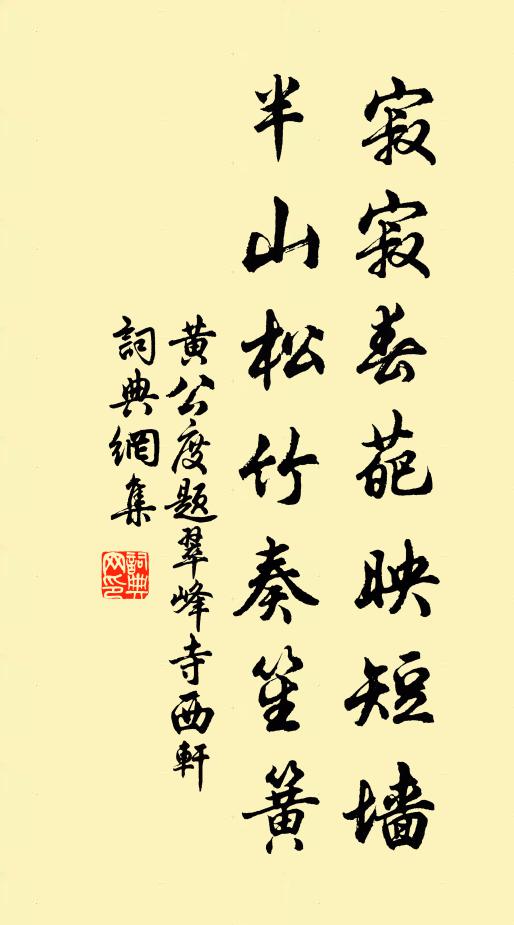 寂寂春葩映短墙
半山松竹奏笙簧
黄公度题翠峰寺西軒
詞典網集
詞典网印